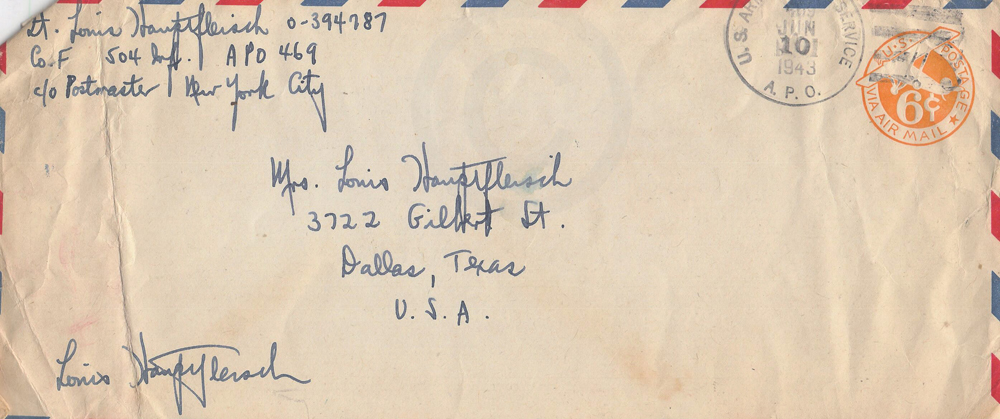 Lt. Louis Hauptfleisch O-394787
Co. F 504 Inf. APO 469
c/o Postmaster New York City
U.S. ARMY SERVICE
JUN
10
1943
A.P.O.
U.S. POSTAGE
6¢
VIA AIR MAIL
Mrs. Louis Hauptfleisch
3722 Gilbert St.
Dallas, Texas
U.S.A.
Louis Hauptfleisch